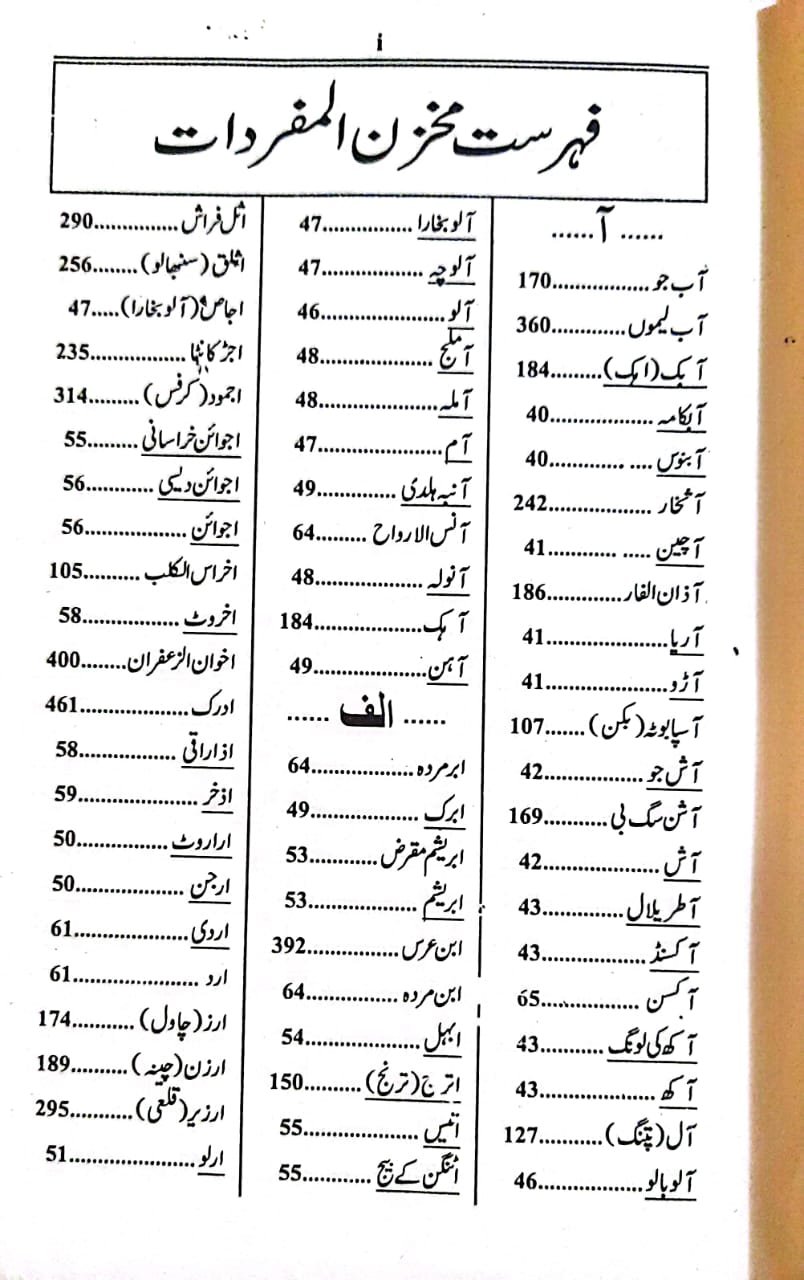 i
فہرست مخزن المفردات
...... آ ......
آب جو.................170
آب لیموں.............360
آبک (اہک).........184
آبکامہ..................40
آبنوس.... .............40
آشخار ..................242
آچین..... ............41
آذان الفار.............186
آریا.....................41
آڑو.....................41
آسپا بوٹہ (بکن).......107
آش جو.................42
آشن سگ بی...........169
آش ....................42
آطریلال..............43
آکسنڈ..................43
آکسن .................65
آکھ کی لونگ...........43
آکھ.....................43
آل (پتنگ)...........127
آلو بالو..................46
آلو بخارا ................47
آلوچہ ..................47
آلو......................46
آملج....................48
آملہ....................48
آم......................47
آنبہ ہلدی..............49
آنس الارواح .........64
آنولہ ...................48
آہک...................184
آہن....................49
...... الف ......
ابر مردہ .................64
ابرک ..................49
ابریشم مقرض............53
ابریشم ..................53
ابن عرس................392
ابن مردہ ...............64
ابہل ....................54
اترج (ترنج)..........150
اتیس ...................55
اٹنگن کے بیج............55
اثل فراش...............290
اثلق (سنبھالو)........256
اجاص (آلو بخارا).....47
اجڑ کانٹا.................235
اجمود (کرفس).........314
اجوائن خراسانی .........55
اجوائن دیسی............56
اجوائن ..................56
اخراس الکلب ..........105
اخروٹ.................58
اخوان الزعفران........400
ادرک....................461
اذاراقی..................58
اذخر .....................59
اراروٹ..................50
ارجن ...................50
اردی.....................61
ارد ......................61
ارز (چاول) ...........174
ارزن (چینہ)..........189
ارزیر (قلعی)...........295
ارلو.......................51